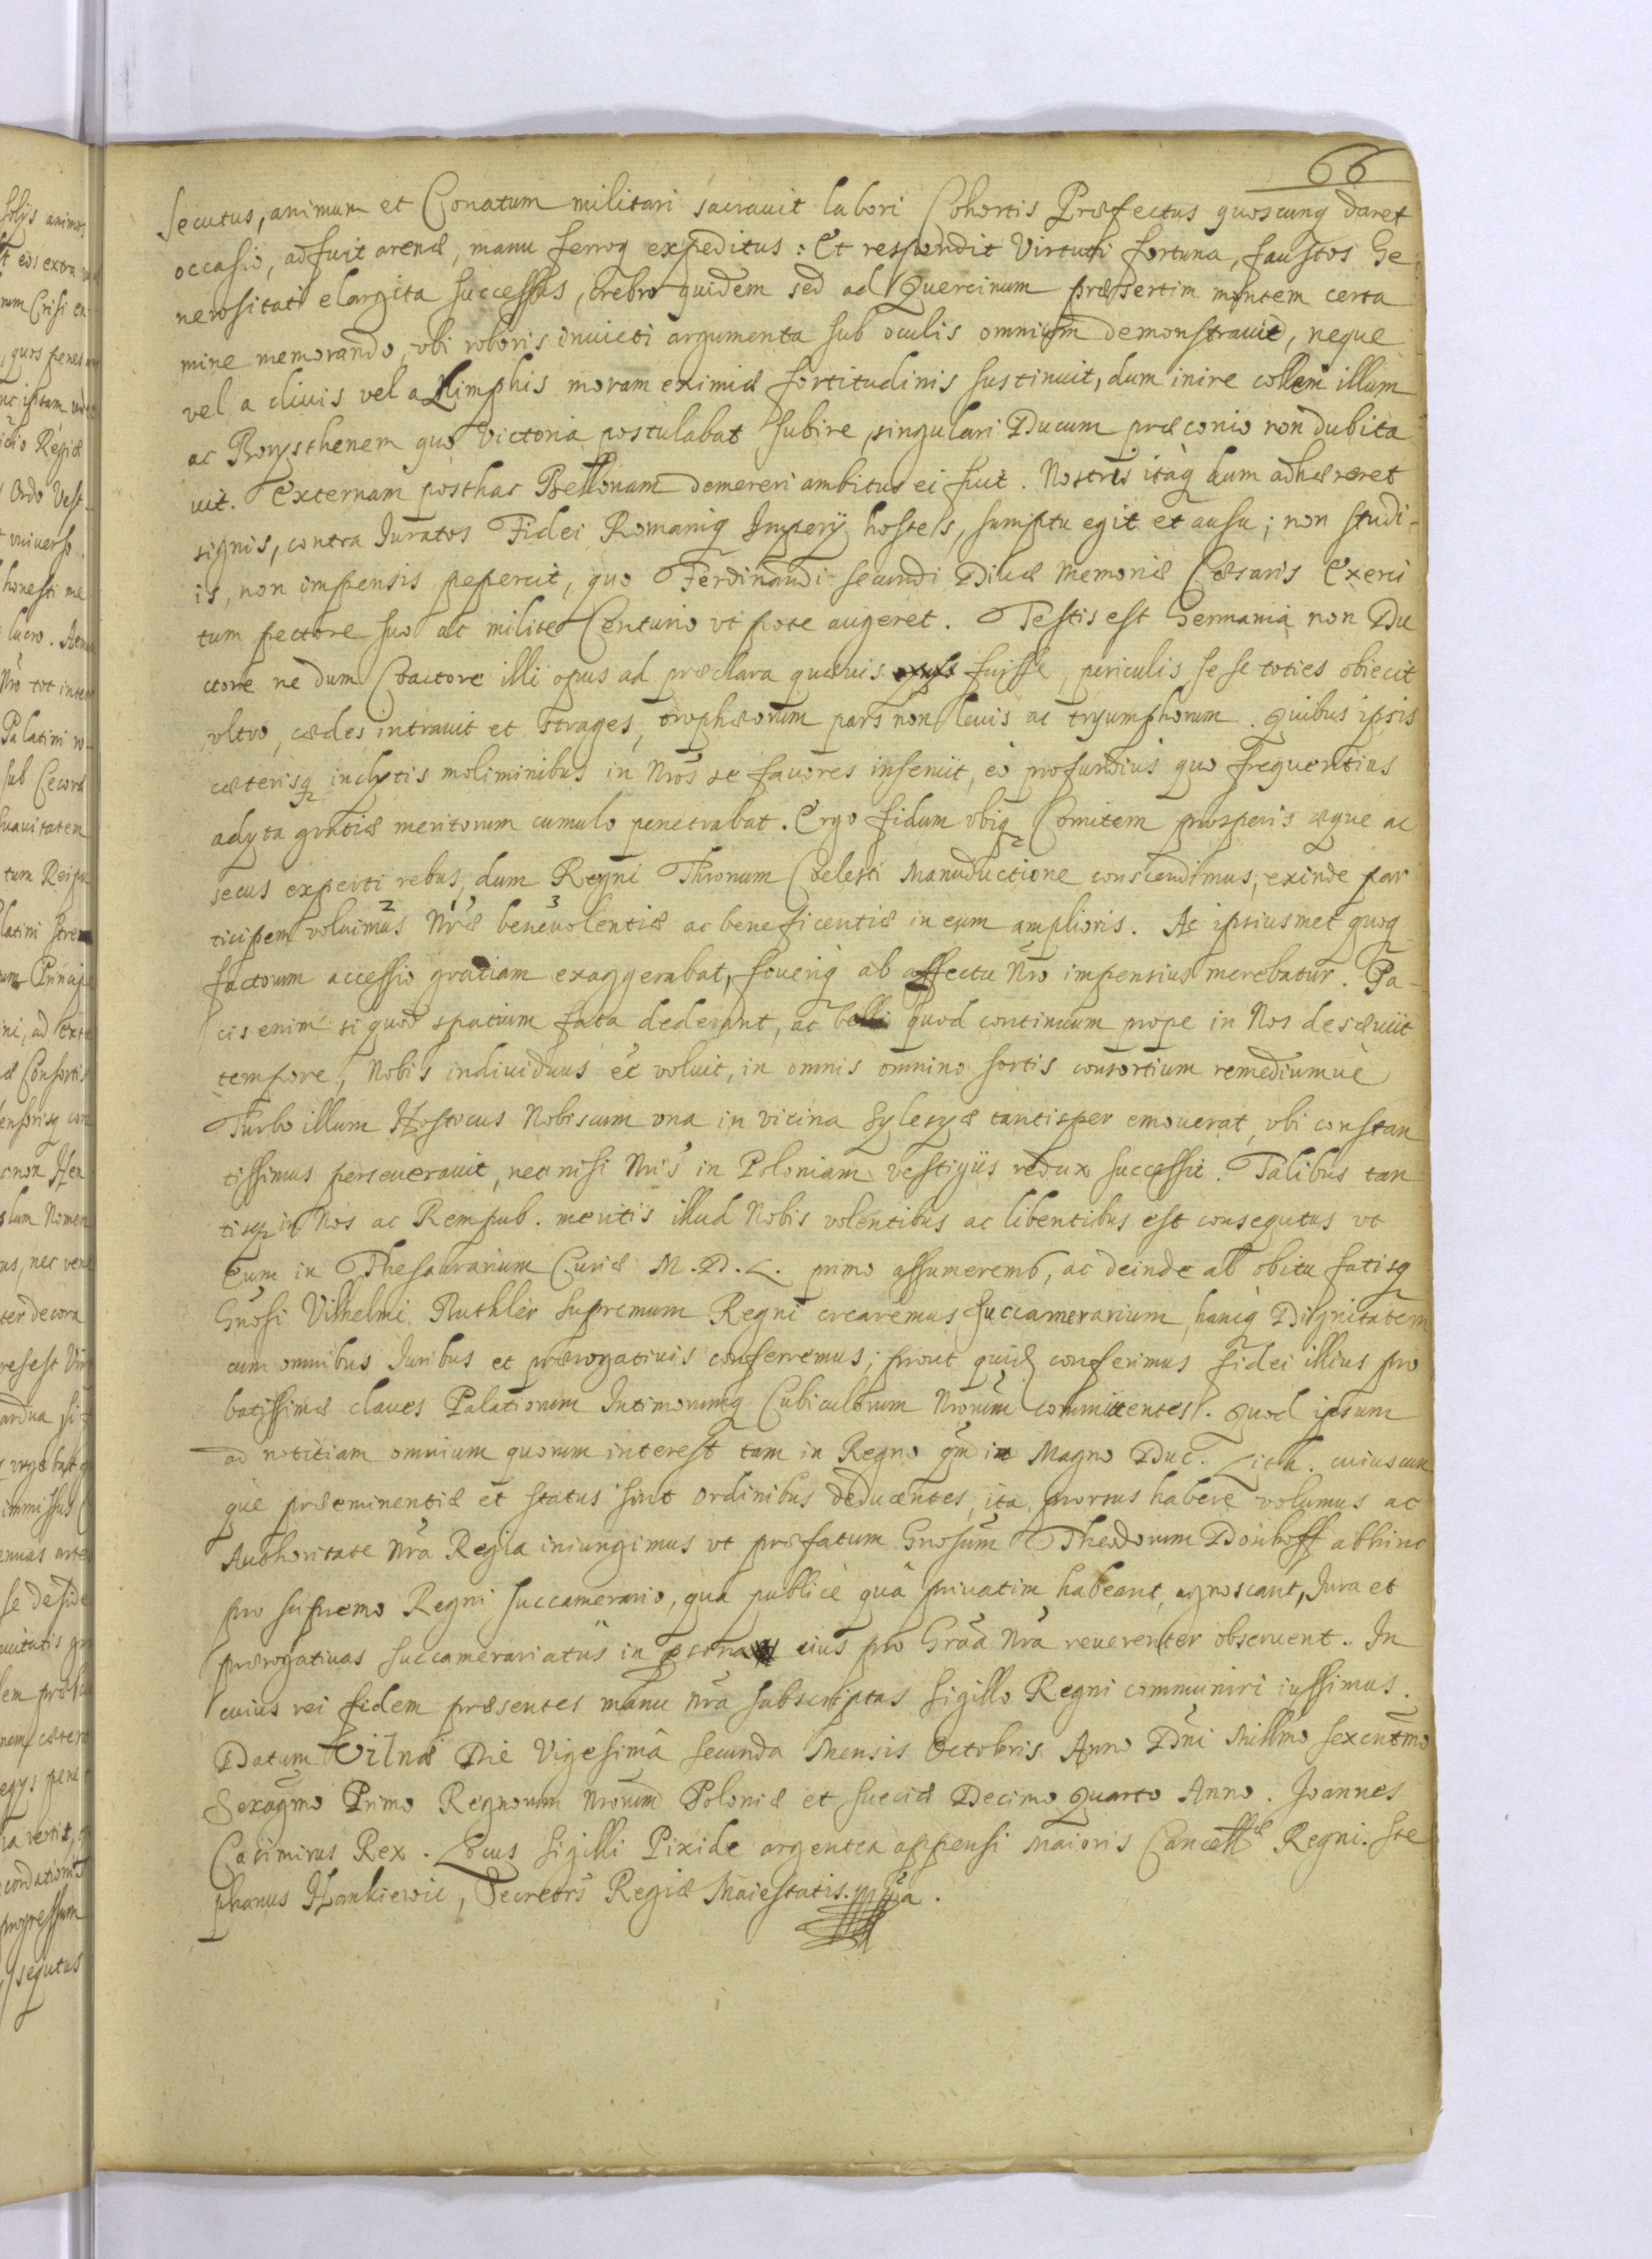 66
secutus, animum et Conatum militari sacrauit labori Cohortis Præfectus quoscunq daret
occasio, adfuit arenæ, manu ferroq expeditus: Et respondit Virtuti fortuna, faustos Ge
nerositati elargita successus, crebro quidem sed ad Quercinum præsertim montem certa
mine memorando, vbi roboris inuicti argumenta sub oculis omnium demonstrauit, neque
vel a cliuis vel a Limphis moram eximiæ fortitudinis sustinuit, dum inire collem illum
ac Borysthenem quo Victoria postulabat subire, singulari Ducum præconio non dubita
uit. Externam posthac Bellonam demereri ambitus ei fuit. Nostris itaq dum adhæreret
signis, contra Iuratos Fidei Romaniq Imperÿ hostes, sumptu egit et ausu; non studi-
is, non impensis pepercit, quo Ferdinandi secundi Diuæ Memoriæ Cæsaris Exerci
tum pectore suo ac milite Centurio vt pote augeret. Testis est Germania non Du
ctore ne dum Coactore illi opus ad præclara quæuis fuisse, periculis se se toties obiecit
vltro, cædes intrauit et strages, trophæorum pars non leuis ac tryumphorum. Quibus ipsis
cæterisq inclytis moliminibus in Nros se fauores inseruit, eò profundius quo frequentius
adyta gratiæ meritorum cumulo penetrabat. Ergo fidum vbiq Comitem prosperis æque ac
secus experti rebus, dum Regni Thronum Coelesti Manuductione conscendimus, exinde par
ticipem voluimus Nræ beneuolentiæ ac beneficentiæ in eum amplioris. Ac ipsiusmet quoq
factorum accessio gratiam exaggerabat, foueriq ab affectu Nro impensius merebatur. Pa-
cis enim si quod spatium fata dederant, ac belli quod continuum prope in Nos desæuiit
tempore, Nobis indiuiduus et voluit, in omnis omnino sortis consortium remediumuè
Turbo illum Hosticus Nobiscum vna in vicina Sylesyæ tantisper emouerat, vbi constan
tissimus perseuerauit, nec nisi Nris in Poloniam vestigiis redux successit. Talibus tan
tisq in Nos ac Rempub. meritis illud Nobis volentibus ac libentibus est consequtus vt
Eum in Thesaurarium Curiæ M. D. L. primo assumeremb, ac deinde ab obitu fatisq
Gnosi Vilhelmi Buthler supremum Regni crearemus Succamerarium, hancq Dignitatem
cum omnibus Iuribus et prærogatiuis conferremus; prout quidē conferimus fidei illius pro
batissimæ claues Palatiorum Intimorumq Cubiculorum Nrorum committentes. Quod ipsum
ad notitiam omnium quorum interest tam in Regno qm in Magno Duc. Lith. cuiuscun
que præeminentiæ et status sint ordinibus deducentes, ita prorsus habere volumus ac
Authoritate Nra Regia iniungimus vt præfatum Gnosum Theodorum Donhoff abhinc
pro supremo Regni succamerario, quà publicè quà priuatim habeant, agnoscant, Iura et
prærogatiuas succamerariatus in eius pro Graa Nra reuerenter obseruent. In
cuius rei fidem præsentes manu nra subscriptas sigillo Regni communiri iussimus.
Datum Vilnæ Die Vigesima secunda Mensis Octobris Anno Dni Millmo sexcntmo
Sexagmo Primo Regnorum Nrorum Poloniæ et Sueciæ Decimo Quarto Anno. Joannes
Casimirus Rex. Locus sigilli Pixide argentea appensi Maioris Cancellræ Regni. Ste
phanus Hankiewic, Secretrs Regiæ Maiestatis. mpa.